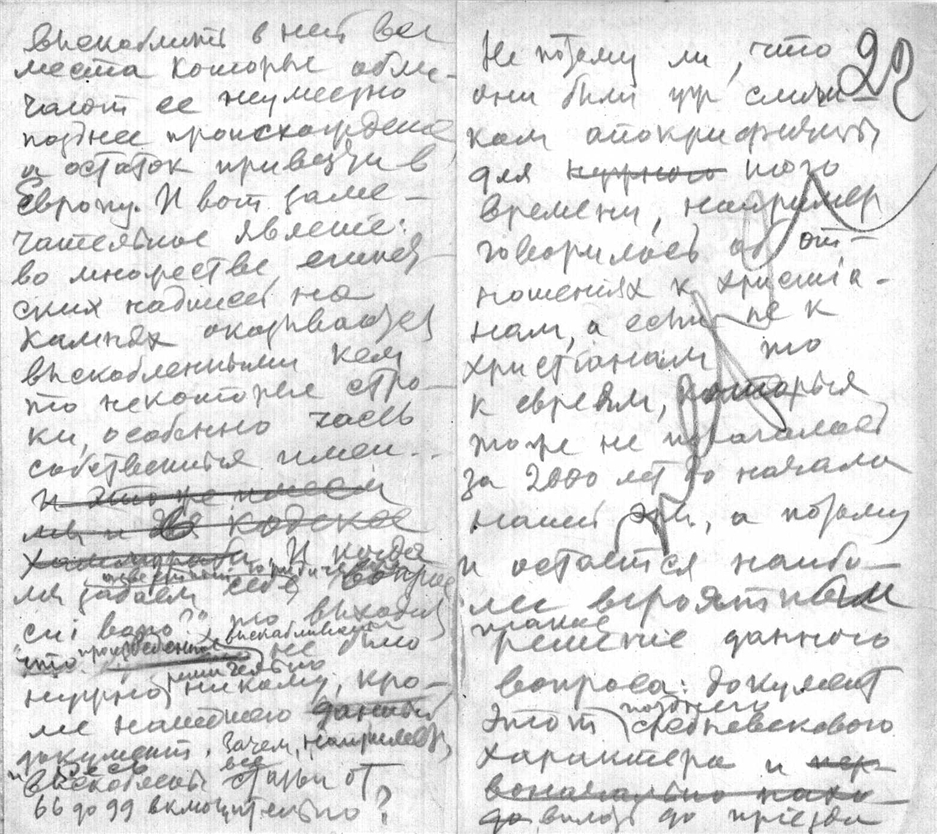 выскоблить в ней все
места которые обли-
чают ее неуместно
позднее происхождение
и остаток привезти в
Европу. И вот заме-
чательное явление:
во множестве египет-
ских надписей на
камнях оказываются
выскобленными кем
то некоторые стро-
ки, особенно часть
собственныя имен..
и это же имеем
мы и в кодексе
Хаммураби. И когда
мы задаем себе вопрос
"что произведенное выскабливание не было
нужно решительно никому, кро-
ме нашедшего
документ. Зачем, например,
выскоблены все статьи от
66 до 99 включительно?
22
Не потому ли, что
они были уж слиш-
ком апокрифичны
для нужного того
времени, например
говорилось об от-
ношениях к христиа-
нам, а если не к
христианам то
к евреям, которых
тоже не полагалось
за 2000 лет до начала
нашей эры, а потому
и остается наибо-
лее вероятным
такое
решение данного
вопроса: документ
этот позднего средневекового
характера и пер-
воначально нахо-
дился до приезда